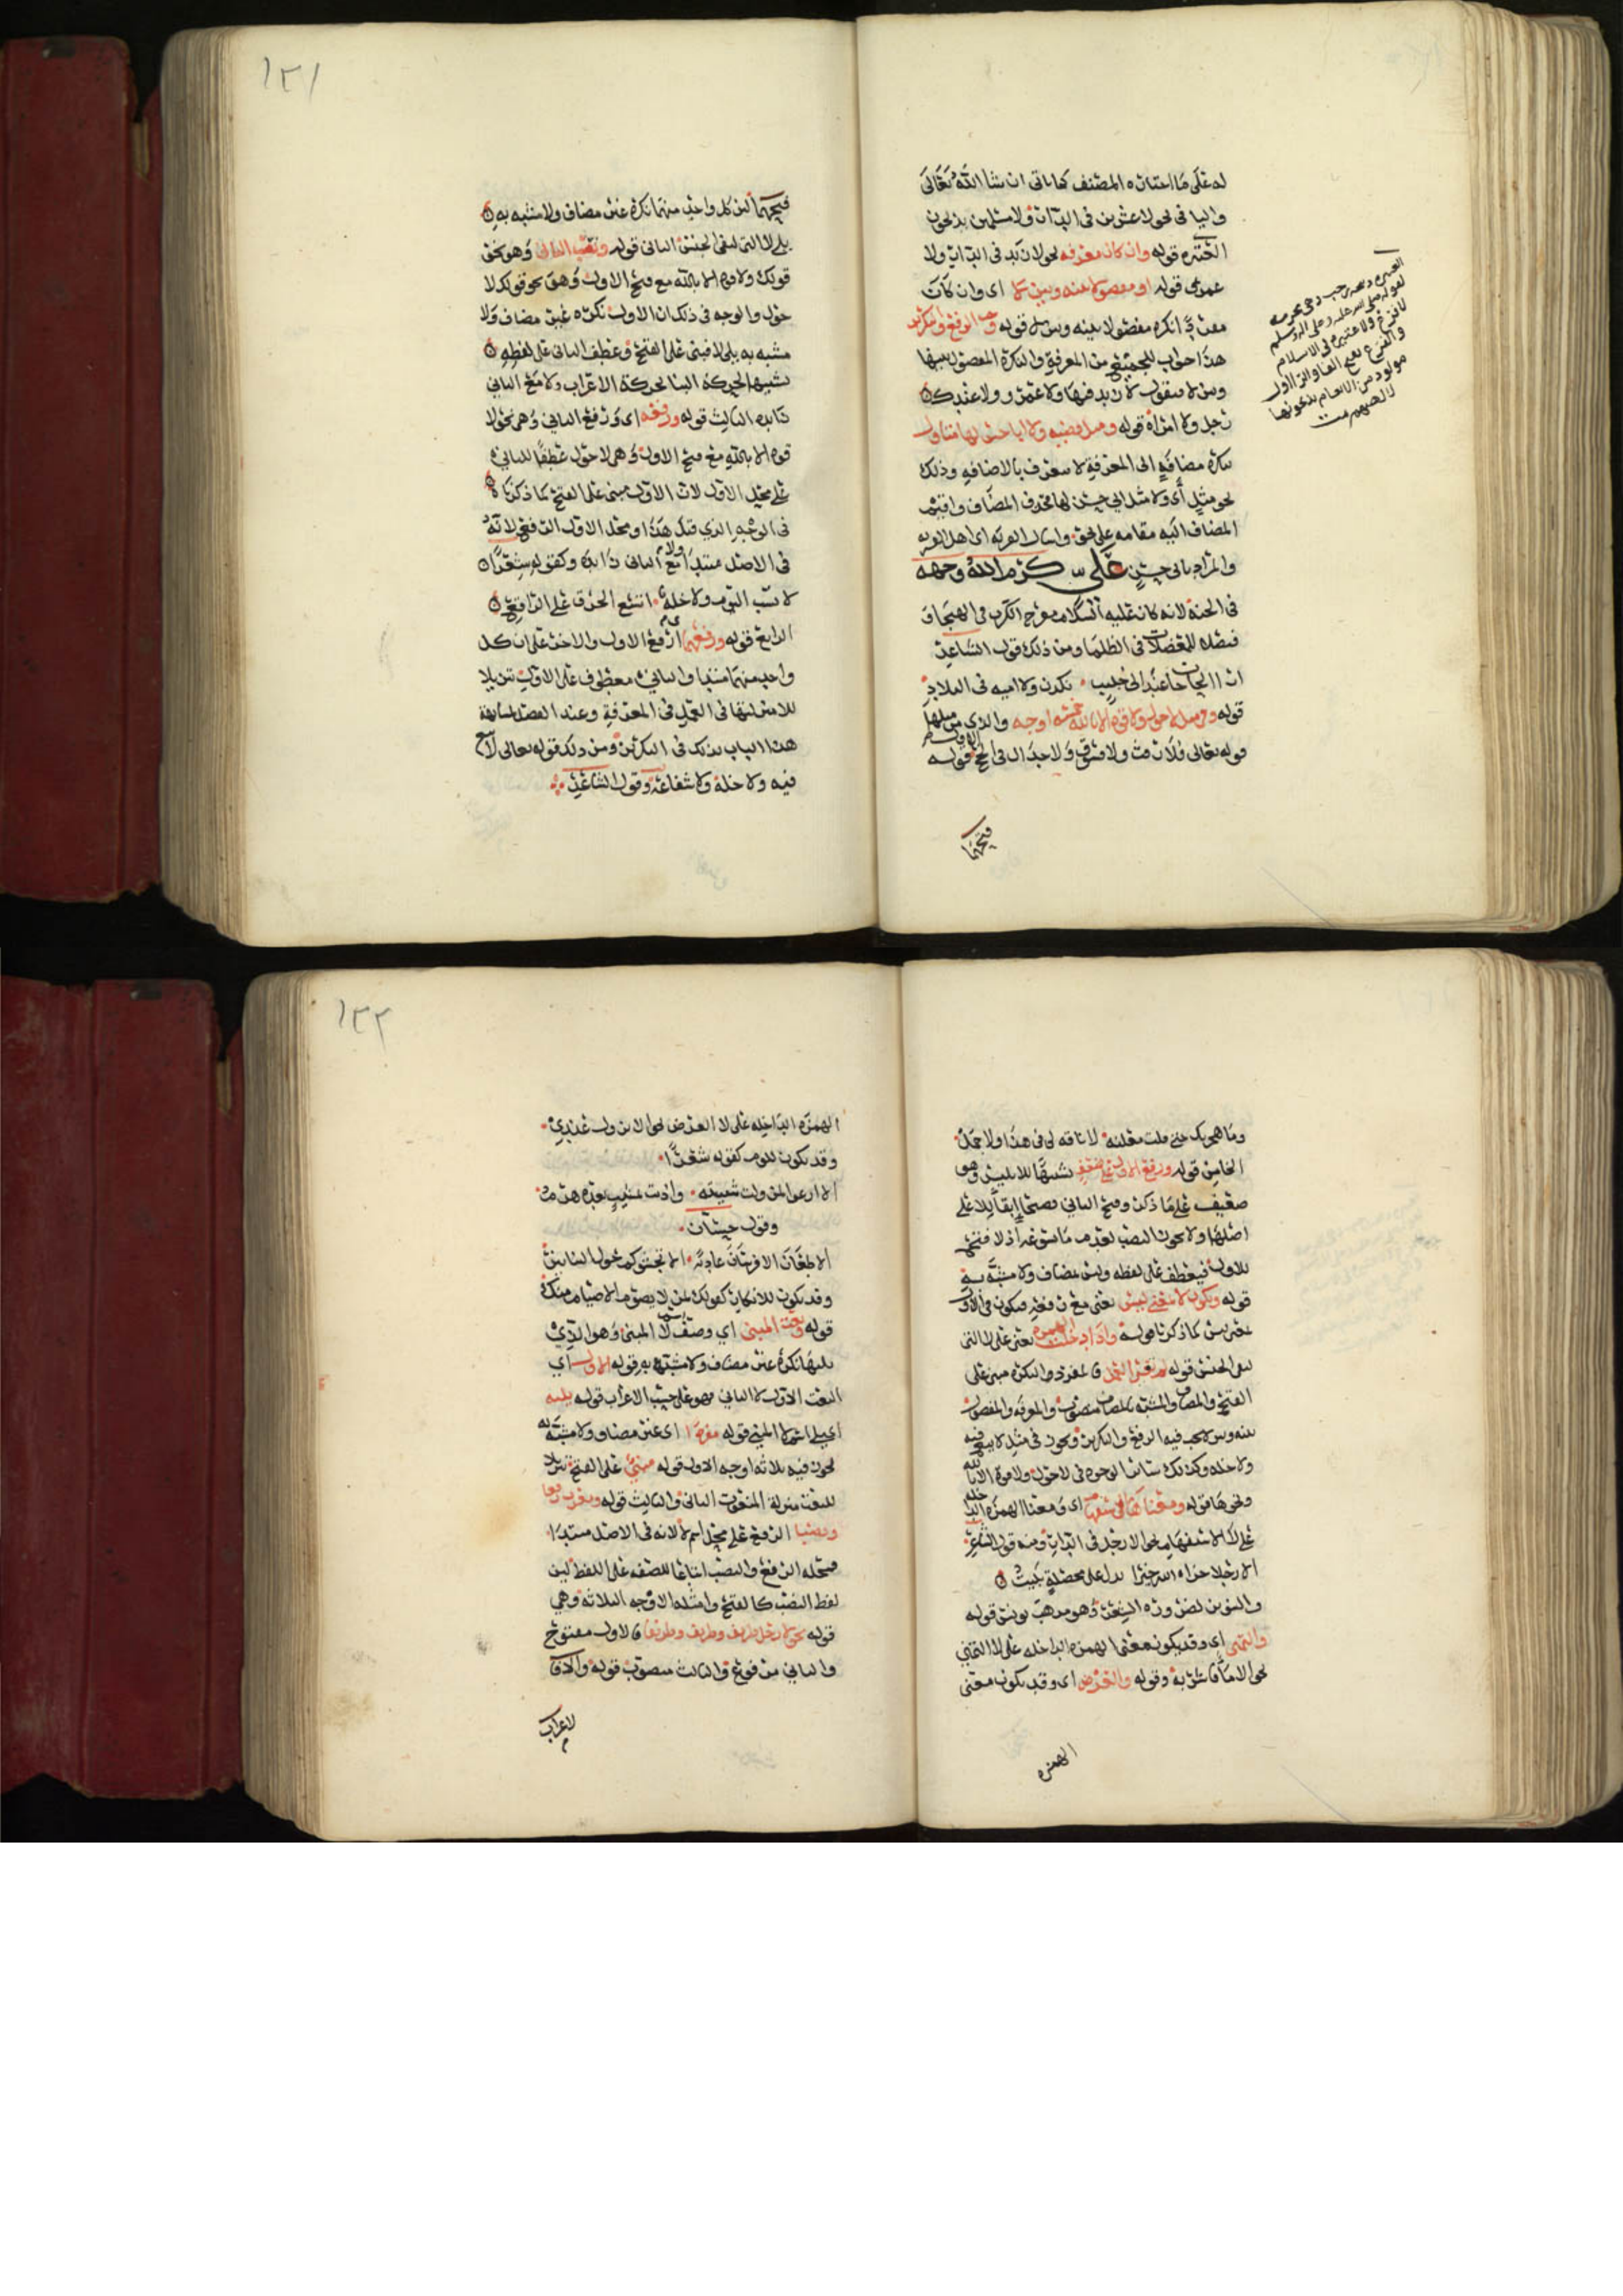 له على ما اختاره المصنف كما ياتي ان شا الله تعالى
واليا في نحو لا عشرين في الدار ولا مسلمين يذبحون
العتيره قوله وان كان معرفه نحو لا زيد في الدار ولا
عمرو قوله او مفصولا بينه وبين لا اى وان كان
نكره مفصولا بينه وبين لا قوله وجب الرفع والتكرير
هذا جواب للجميع من المعرفة والنكرة المفصول بينها
وبين لا فتقول لا زيد فيها ولا عمرو ولا عندك
رجل ولا امراة قوله ومثل قضيه ولا ابا حسن لها متاول
نكره مضافة الى المعرفة لا تتعرف بالاضافه وذلك
نحو مثل أى ولا مثل ابي حسن لها فحذف المضاف واقيم
المضاف اليه مقامه على نحو واسال القريه اى اهل القريه
والمراد بابي حسن على كرم الله وجهه
فى الجنة لانه كان عليه السلام مفرج الكرب فى الهيجا و
فيصله للمعضلات فى الظلما ومن ذلك قول الشاعر
ارى الحاجات عند ابى خبيب نكدن ولا اميه فى البلاد
قوله وفى مثل لا حول ولا قوة الا بالله خمسه اوجه والذي من مثلها
قوله تعالى فلا رفث ولا فسوق ولا جدال فى الحج الاول قوله
فتحهما
العتيره
لقوله صلى الله عليه وعلى اله وسلم
لا فرع ولا عتيره فى الاسلام
والفرع بفتح الفا والرا اول
مولود من الانعام يذبحونها
لالهتهم
١٢١
فتحهما لان كل واحد منهما نكرة غير مضاف ولا مشبه به
يلي لا التى لنفي الجنس الثانى قوله ونصب الثاني وهو نحو
قولك ولا قوة الا بالله مع فتح الاول وهو نحو قولك لا
حول والوجه فى ذلك ان الاول نكره غير مضاف ولا
مشبه به يلي لا فبنى على الفتح وعطف الثانى على لفظه
تشبيها لحركة البنا بحركة الاعراب ولا مع الثاني
زايده الثالث قوله ورفعه اى ورفع الثاني وهو نحو لا
قوة الا بالله مع فتح الاول وهو لا حول عطفا للثاني
على محل الاول لان الاول مبنى على الفتح كما ذكرنا
فى الوجه الذي قبل هذا ومحل الاول الرفع لانه
فى الاصل مبتدا ولا مع الثانى زايده وكقوله شعرا
لا نسب اليوم ولا خله اتسع الخرق على الراقع
الرابع قوله ورفعهما اى رفع الاول والاخر على ان كل
واحد منهما مبتدا والثاني معطوف على الاول تنزيلا
للا منزلتها فى العمل فى المعرفة وعند الفصل لمشابهة
هذا الباب بذلك فى التكرير ومن ذلك قوله تعالى لا بيع
فيه ولا خلة ولا شفاعة وقول الشاعر
وما هجرتك حتى قلت معلنة لا ناقه لي فى هذا ولا جمل
الخامس قوله ورفع الاول على ضعف تشبيها للا بليس وهو
ضعيف على ما ذكر وفتح الثاني فصحيح ابقا للا على
اصلها ولا يجوز النصب لعدم ما يسوغه اذ لا فتح
للاول فيعطف على لفظه وليس بمضاف ولا مشبه به
قوله ويكون لا بمعنى ليس يعنى مع رفعه فيكون فى الاول
بمعنى ليس كما ذكرنا قوله واذا دخلت الهمزه يعنى على لا التى
لنفى الجنس قوله لم يغير العمل فالمفرد والنكره مبنى على
الفتح والمضاف والمشبه بالمضاف منصوب والمعرفه والمفصول
بينه وبين لا يجب فيه الرفع والتكرير ويجوز فى مثل لا بيع فيه
ولا خله وكذلك ستاتي الوجوه فى لا حول ولا قوة الا بالله
ونحوها قوله ومعناها الاستفهام اى ومعنا الهمزه الداخله
على لا الاستفهام نحو الا رجل فى الدار ومنه قول الشاعر
الا رجلا جزاه الله خيرا يدل على محصلة تبيت
والتنوين لضرورة الشعر وهو مذهب يونس قوله
والتمنى اى وقد يكون معنى الهمزه الداخله على لا التمنى
نحو الا ماء فاشربه وقوله والعرض اى وقد يكون معنى
الهمزه
١٢٢
الهمزه الداخله على لا العرض نحو الا نزول عندي
وقد يكون للوم كقوله شعرا
الا ارعوا لمن ولت شبيبته واذنت بمشيب بعده هرم
وقول حسان
الا طعان الا فرسان عادية الا تجشؤكم حول التنانير
وقد يكون للانكار كقولك لمن لا يصوم الا صيام منك
قوله ونعت المبنى اي وصف اسم لا المبنى وهو الذي
يليها نكرة غير مضاف ولا مشبه به قوله الاول اي
النعت الاول لا الثاني فهو على حسب الاعراب قوله يليه
اى يلى اسم لا المبنى قوله مفردا اى غير مضاف ولا مشبه به
يجوز فيه ثلاثه اوجه الاول قوله مبني على الفتح تنزيلا
للنعت منزلة المنعوت الثانى والثالث قوله ومعرب رفعا
ونصبا الرفع على محل اسم لا لانه فى الاصل مبتدا
فمحله الرفع والنصب اتباعا للصفه على اللفظ لان
لفظ النصب كالفتح وامثله الاوجه الثلاثه وهي
قوله نحو لا رجل ظريف وظريف وظريفا فالاول مفتوح
والثاني مرفوع والثالث منصوب قوله والا فا
لاعراب